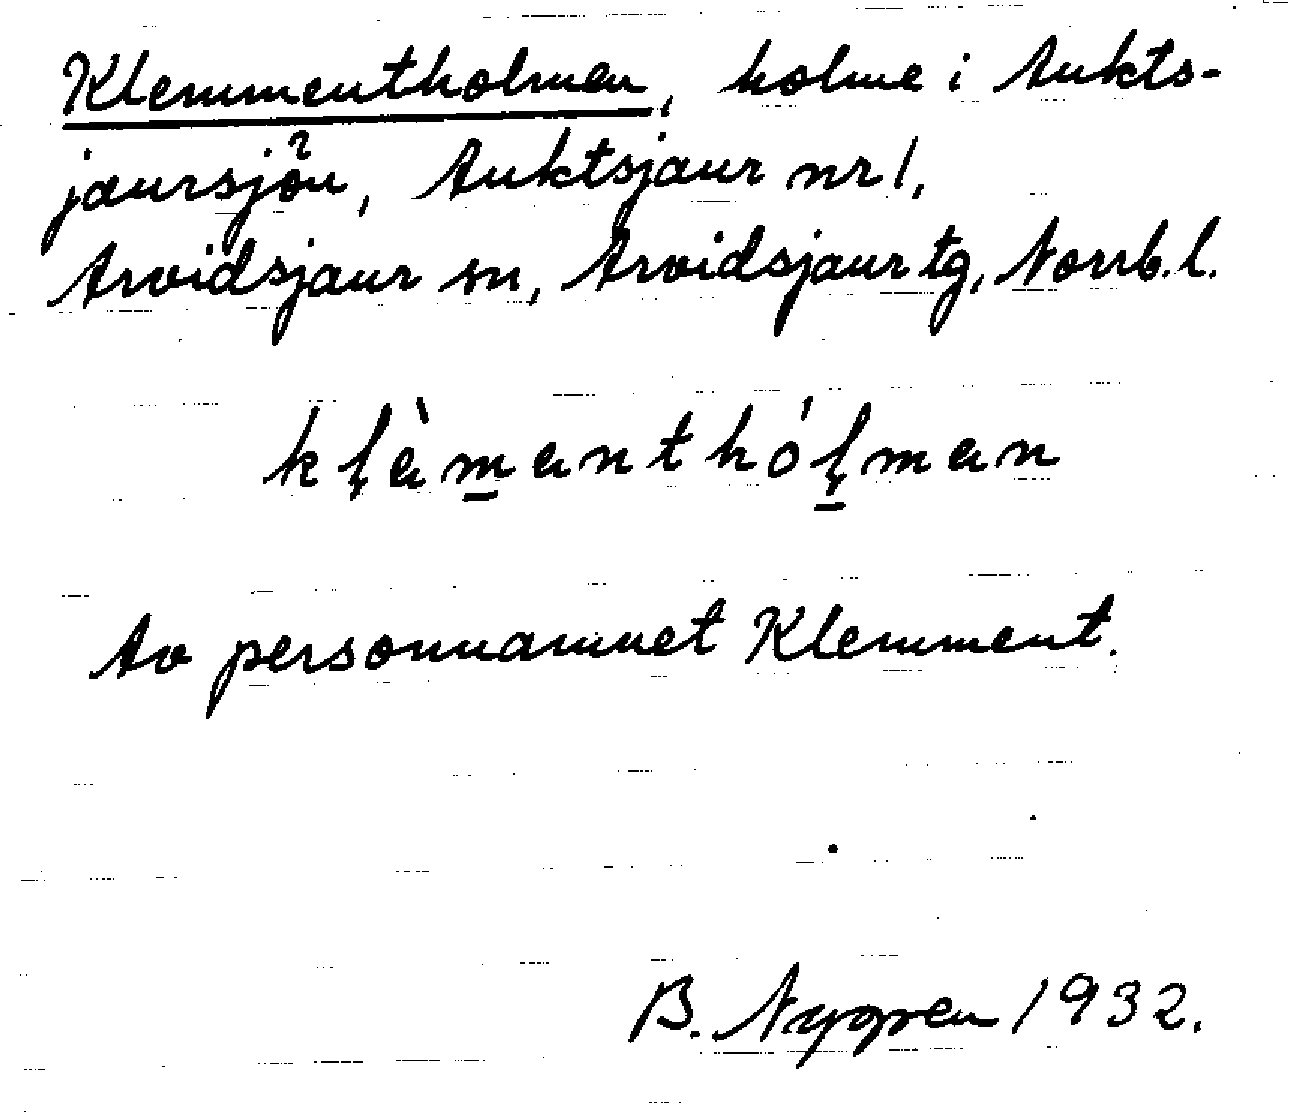 Klemmentholmen, holme i Aukts-
jaursjön, Auktsjaur nr 1,
Arvidsjaur sn, Arvidsjaur tg, Norrb.l.
kḷèm̱enthóḷ̱men
Av personnamnet Klemment.
B. Nygren 1932.